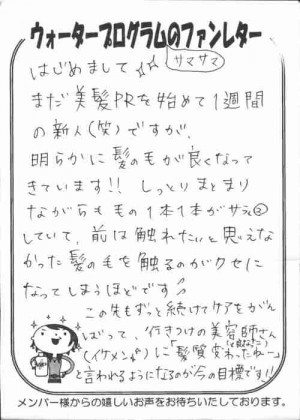 ウォータープログラムのファンレター
サマサマ
はじめまして☆☆
まだ美髪PRを始めて1週間
の新人(笑)ですが、
明らかに髪の毛が良くなって
きています!! しっとりまとまり
ながらも毛の1本1本がサラ②
していて、前は触れたいと思えな
かった髪の毛を触るのがクセに
なってしまうほどです♪
この先もずっと続けてケアをがん
ばって、行きつけの美容師さん
(イケメン)に「髪質変わったねー」
と言われるようになるのが今の目標です!!
メンバー様からの嬉しいお声をお待ちいたしております。